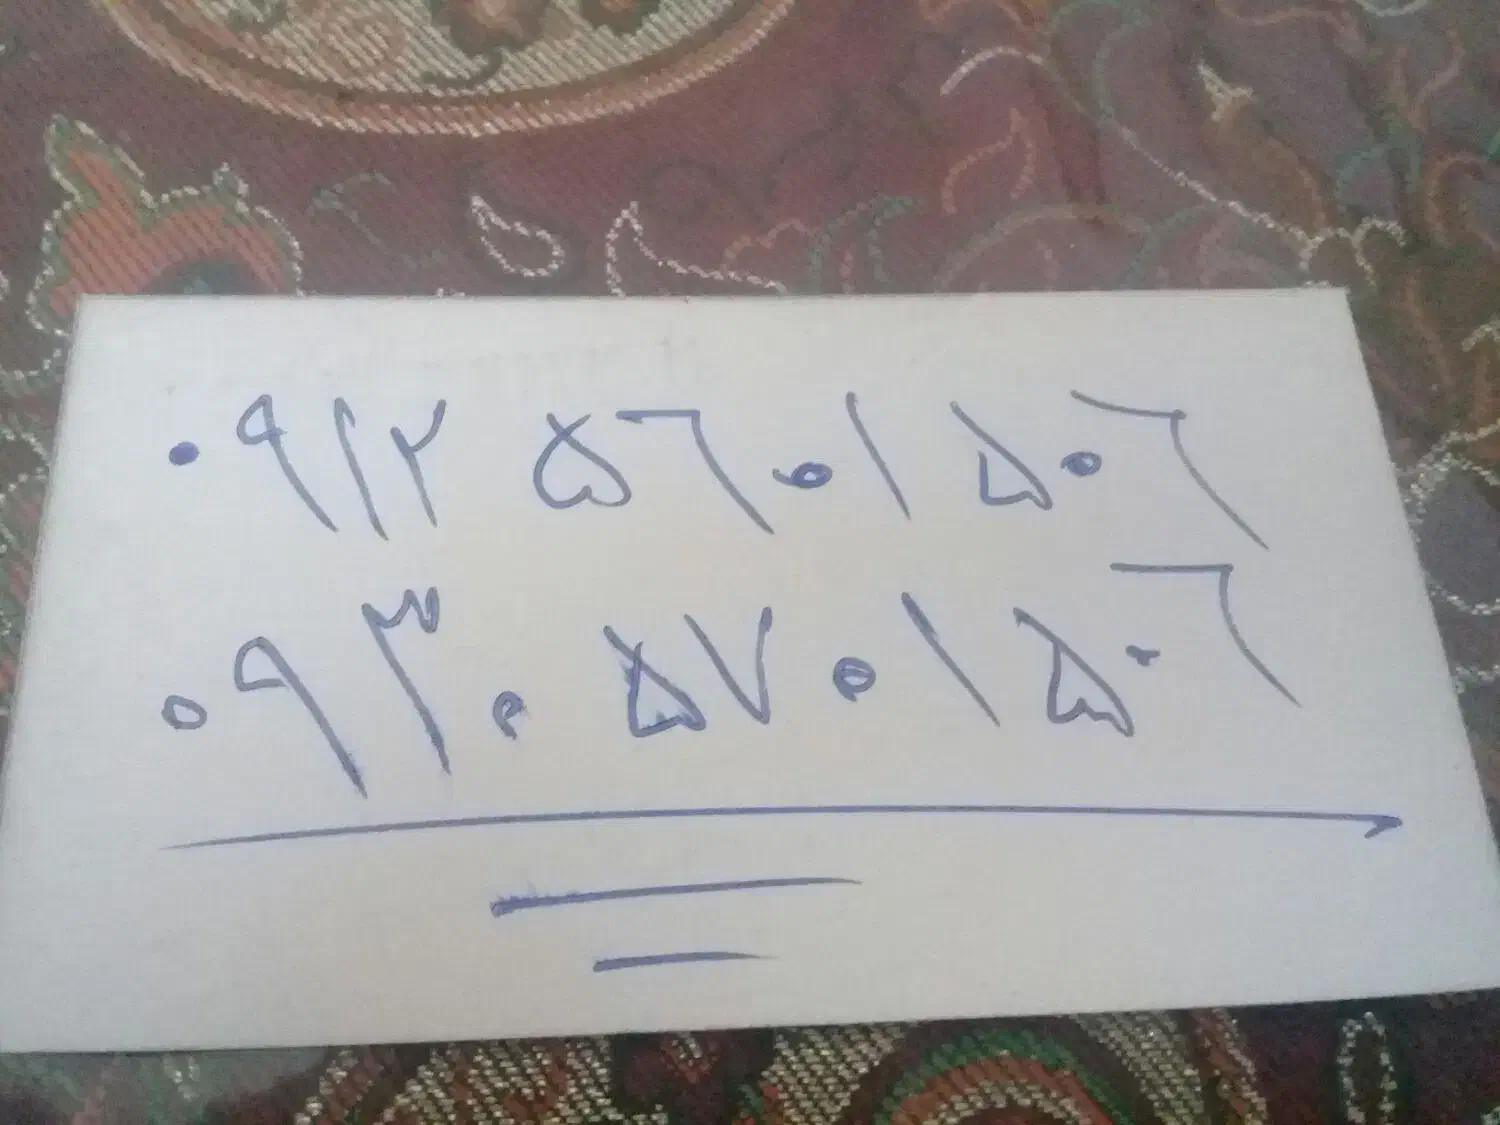 ۰۹۱۲ ۵۶۰۱۵۰۶
۰۹۳۰ ۵۷۰۱۵۰۶